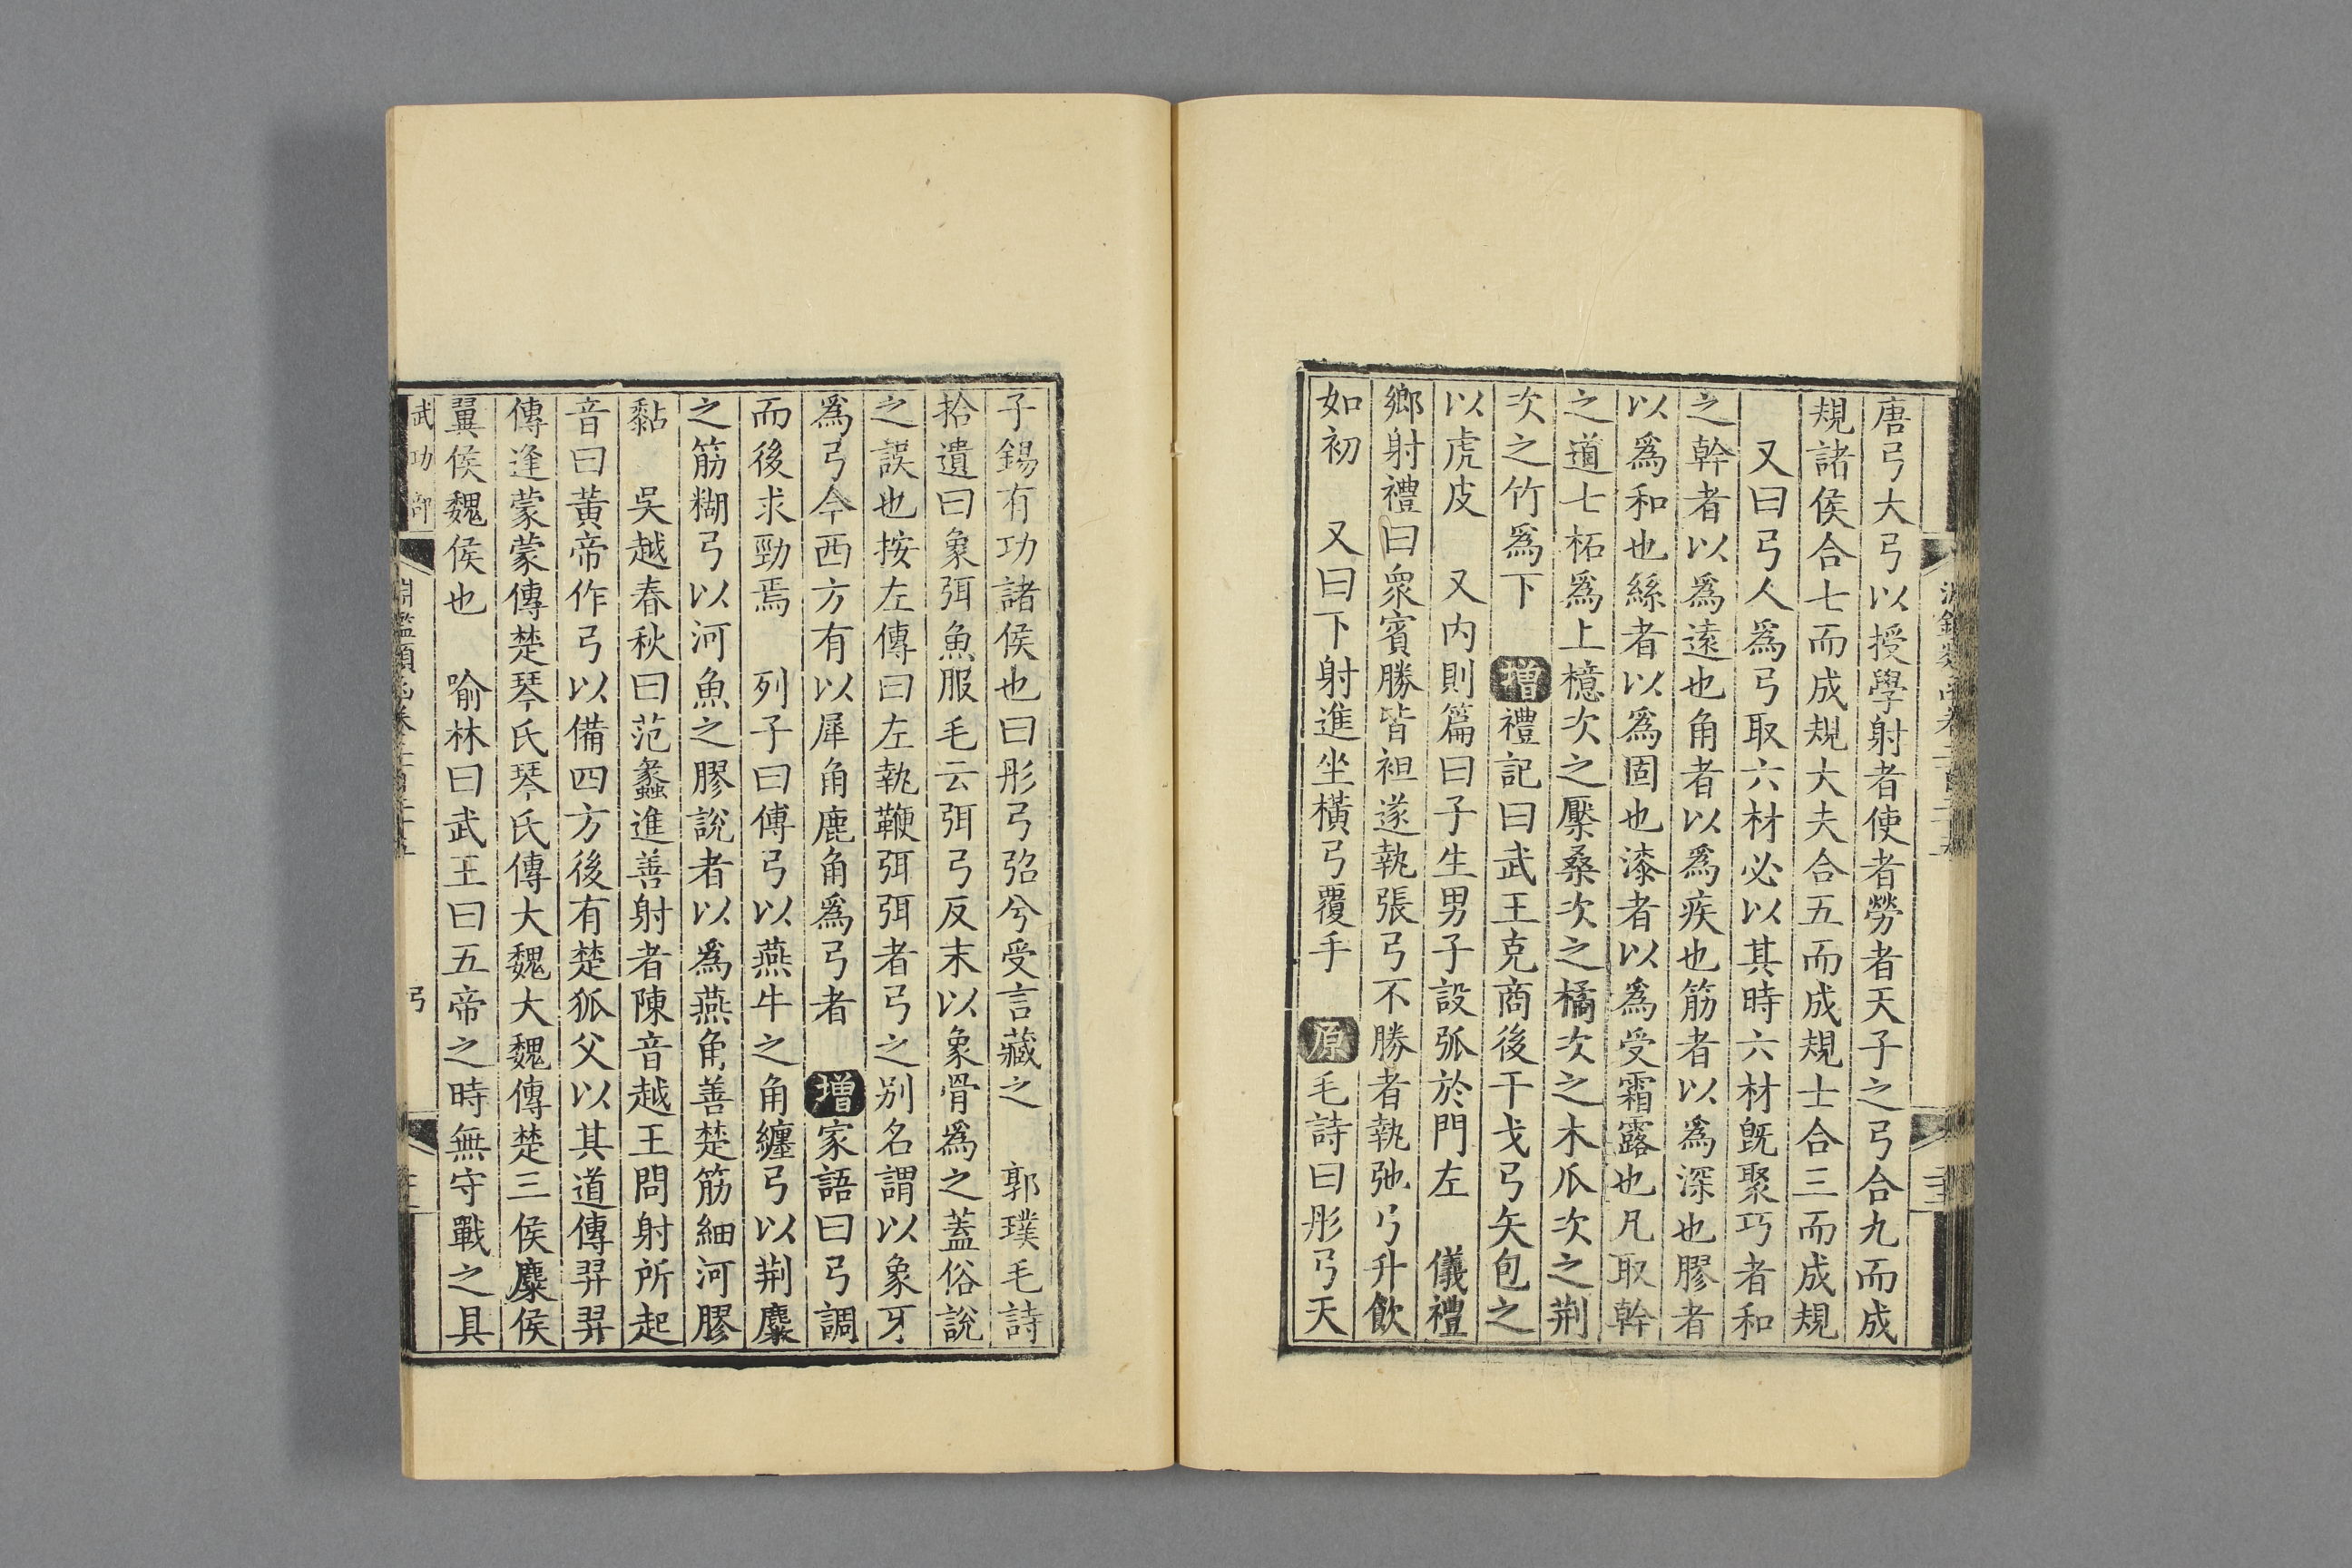 唐弓大弓以授學射者使者勞者天子之弓合九而成
規諸侯合七而成規大夫合五而成規士合三而成規
又曰弓人爲弓取六材必以其時六材旣聚巧者和
之幹者以爲遠也角者以爲疾也筋者以爲深也膠者
以爲和也絲者以爲固也漆者以爲受霜露也凡取幹
之道七柘爲上檍次之檿桑次之橘次之木瓜次之荆
次之竹爲下 增禮記曰武王克商後干戈弓矢包之
以虎皮 又内則篇曰子生男子設弧於門左 儀禮
鄉射禮曰衆賓勝皆袒遂執張弓不勝者執弛弓升飲
如初 又曰下射進坐橫弓覆手 原毛詩曰彤弓天
子錫有功諸侯也曰彤弓弨兮受言藏之 郭璞毛詩
拾遺曰象弭魚服毛云弭弓反末以象骨爲之蓋俗說
之誤也按左傳曰左執鞭弭弭者弓之别名謂以象牙
爲弓今西方有以犀角鹿角爲弓者 增家語曰弓調
而後求勁焉 列子曰傅弓以燕牛之角纏弓以荆麋
之筋糊弓以河魚之膠說者以爲燕角善楚筋細河膠
黏 吳越春秋曰范蠡進善射者陳音越王問射所起
音曰黃帝作弓以備四方後有楚狐父以其道傳羿羿
傳逢蒙蒙傳楚琴氏琴氏傳大魏大魏傳楚三侯麋侯
翼侯魏侯也 喻林曰武王曰五帝之時無守戰之具
武功部 淵鑑類函卷二百二十五 弓